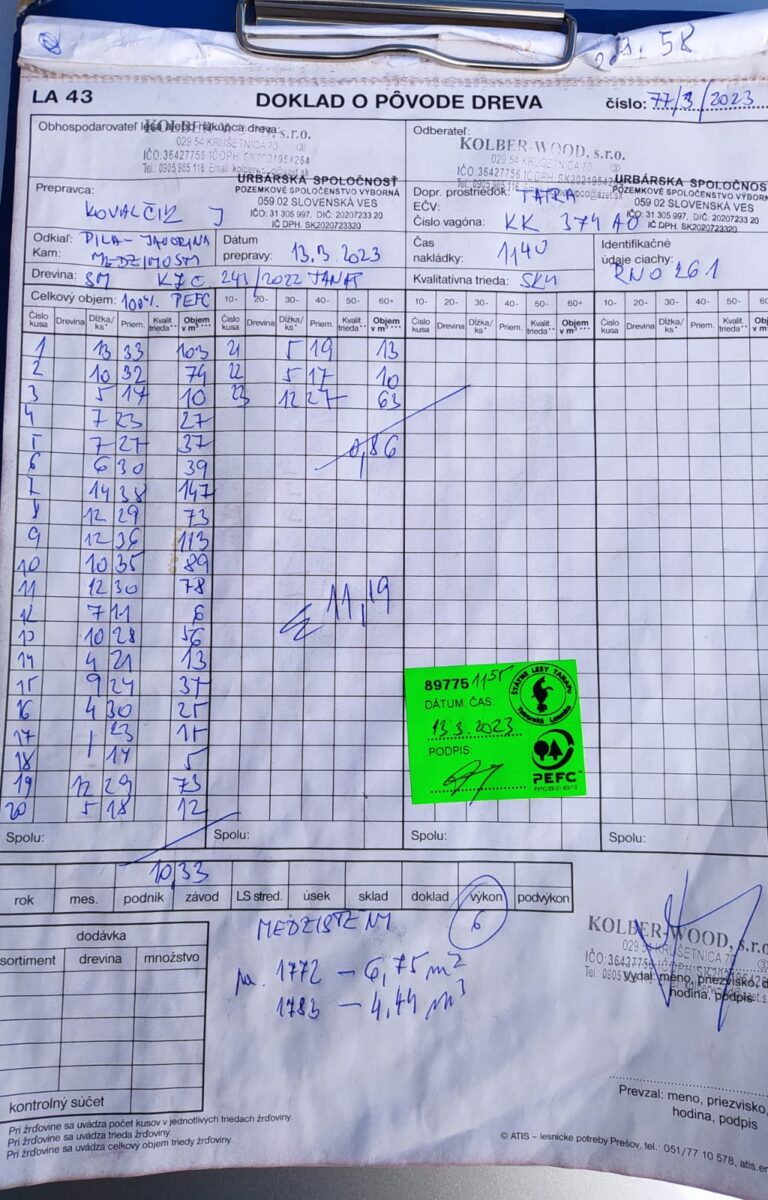 LA 43 DOKLAD O PÔVODE DREVA číslo: 77/3/2023
Obhospodarovateľ lesa alebo nákupca dreva:
KOLBER-WOOD, s.r.o.
029 54 KRUŠETNICA 70
IČO: 36427756 IČ DPH: SK2021954264
Tel.: 0905 985 116
URBÁRSKA SPOLOČNOSŤ
POZEMKOVÉ SPOLOČENSTVO VÝBORNÁ
059 02 SLOVENSKÁ VES
IČO: 31 305 997, DIČ: 2020723320
IČ DPH: SK2020723320
Odberateľ:
KOLBER-WOOD, s.r.o.
029 54 KRUŠETNICA 70
IČO: 36427756 IČ DPH: SK2021954264
Tel.: 0905 985 116
URBÁRSKA SPOLOČNOSŤ
POZEMKOVÉ SPOLOČENSTVO VÝBORNÁ
059 02 SLOVENSKÁ VES
IČO: 31 305 997, DIČ: 2020723320
IČ DPH: SK2020723320
Prepravca: KOVALČIK J
Dopr. prostriedok: TATRA
EČV:
Číslo vagóna: KK 374 AO
Odkiaľ: PILA - JAVORINA
Kam: MEDZIMOSTM
Dátum prepravy: 13.3.2023
Čas nakládky: 1140
Identifikačné údaje ciachy: RNO 261
Drevina: SM 243/2022 TANAP
Kvalitatívna trieda: SKM
Celkový objem: 100% PEFC 10- 20- 30- 40- 50- 60+ 10- 20- 30- 40- 50- 60+ 10- 20- 30- 40- 50-
Číslo kusa Drevina Dĺžka/ks* Priem. Kvalit. trieda** Objem v m³*** Číslo kusa Drevina Dĺžka/ks* Priem. Kvalit. trieda** Objem v m³*** Číslo kusa Drevina Dĺžka/ks* Priem. Kvalit. trieda** Objem v m³*** Číslo kusa Drevina Dĺžka/ks* Priem. Kvalit. trieda**
1 13 33 103 21 5 19 13
2 10 32 74 22 5 17 10
3 5 17 10 23 12 27 63
4 7 23 27
5 7 27 37 0,86
6 6 30 39
7 14 38 147
8 12 29 73
9 12 36 113
10 10 35 89
11 12 30 78
12 7 11 6 11,19
13 10 28 56
14 4 21 13
15 9 24 37
16 4 30 25
17 23 15
18 17 5
19 12 29 73
20 5 18 12
89775 1155
DÁTUM: ČAS
13.3.2023
PODPIS
ŠTÁTNE LESY TANAPU
Tatranská Lomnica
PEFC
Spolu: Spolu: Spolu: Spolu:
10,33
rok mes. podnik závod LS stred. úsek sklad doklad výkon podvýkon
6
dodávka
sortiment drevina množstvo
kontrolný súčet
1772 – 6,75 m²
1783 – 4,44 m³
KOLBER-WOOD, s.r.o.
029 54 KRUŠETNICA 70
IČO: 36427756
Vydal: meno, priezvisko,
hodina, podpis
Prevzal: meno, priezvisko,
hodina, podpis
Pri žrďovine sa uvádza počet kusov v jednotlivých triedach žrďoviny.
Pri žrďovine sa uvádza trieda žrďoviny.
Pri žrďovine sa uvádza celkový objem triedy žrďoviny.
© ATIS – lesnícke potreby Prešov, tel.: 051/77 10 578,